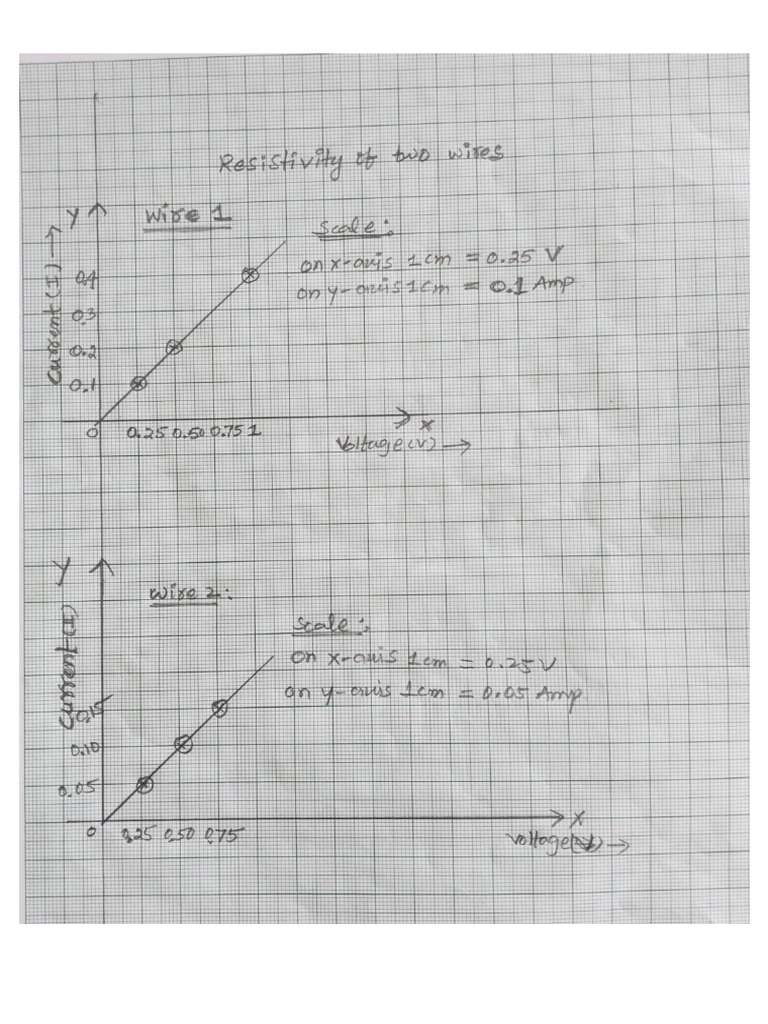 Resistivity of two wires
Y
Wire 1
Scale:
on x-axis 1cm = 0.25 V
on y-axis 1cm = 0.1 Amp
Current (I) →
0.4
0.3
0.2
0.1
0
0.25 0.50 0.75 1
X
Voltage(V) →
Y
Wire 2:
Scale:
on x-axis 1cm = 0.25V
on y-axis 1cm = 0.05 Amp
Current (I)
0.15
0.10
0.05
0
0.25 0.50 0.75
X
Voltage(V) →